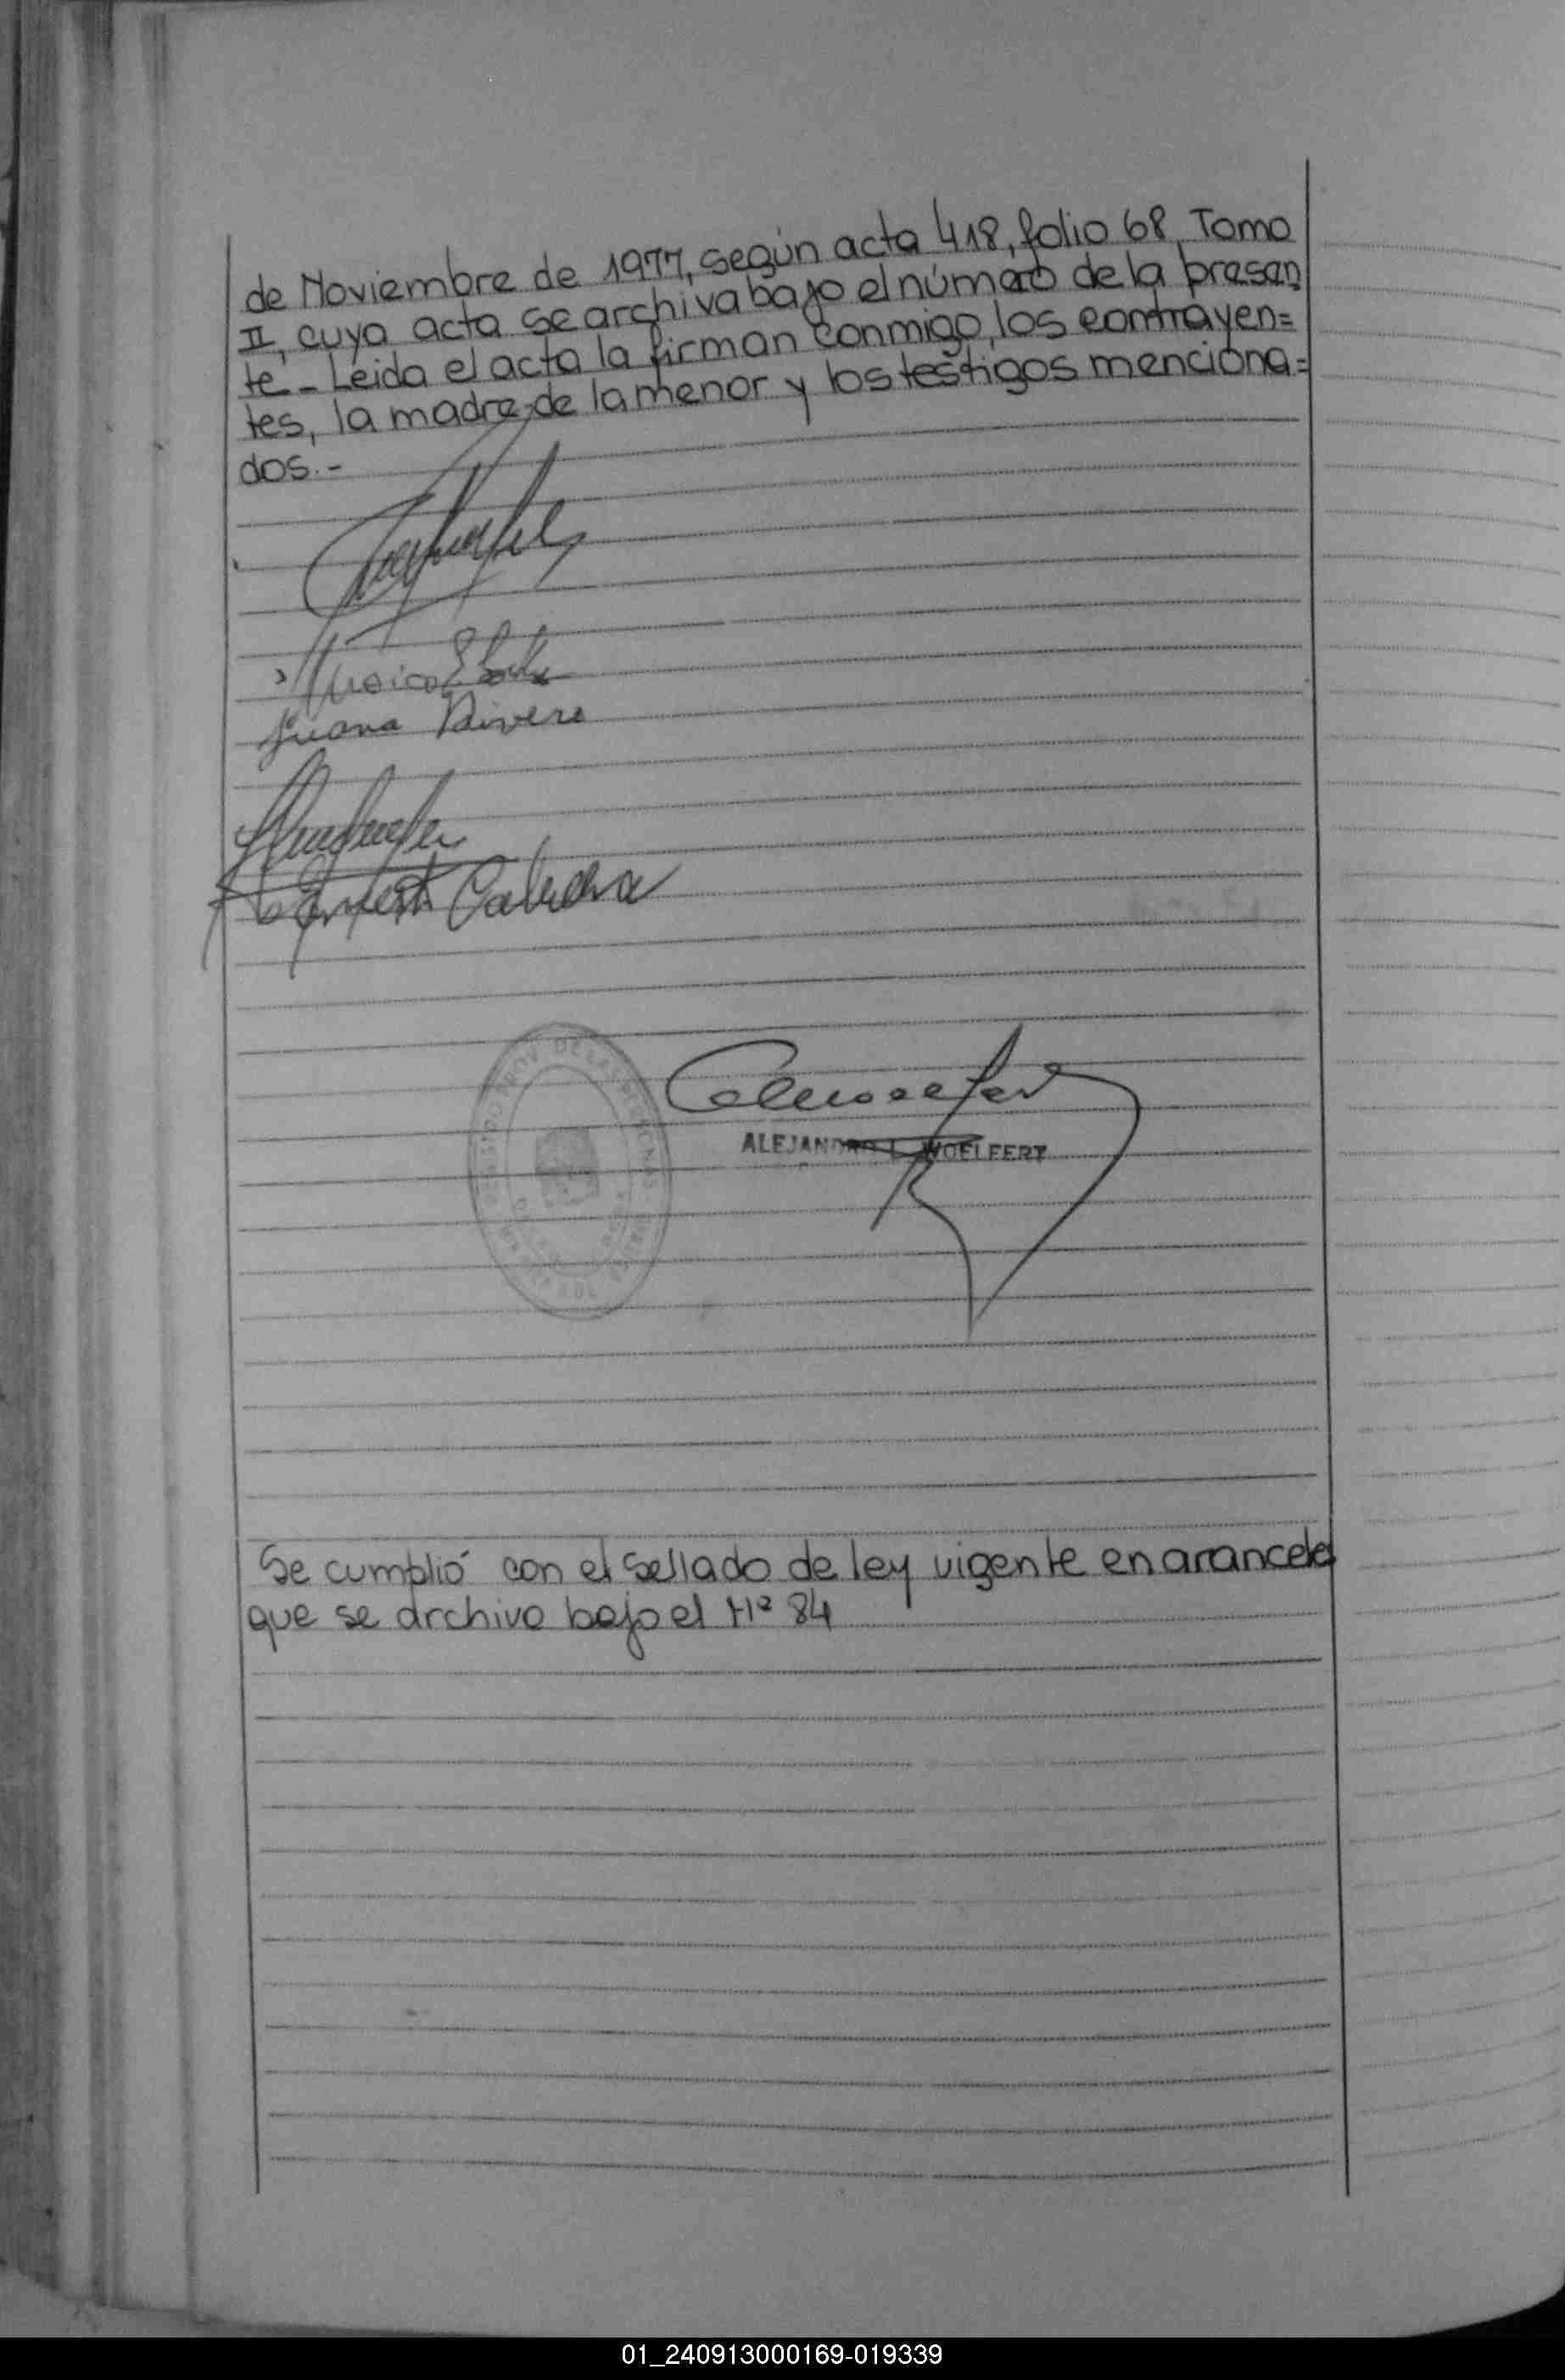 de Noviembre de 1977, según acta 418, folio 68, Tomo
II, cuya acta se archiva bajo el número de la presen
te - Leida el acta la firman conmigo, los contrayen=
tes, la madre de la menor y los testigos menciona=
dos.-
Juana Rivero
Ernesto Cabrera
ALEJANDRO L. WOELFERT
Se cumplió con el sellado de ley vigente en arancel
que se archiva bajo el Nº 84
01_240913000169-019339